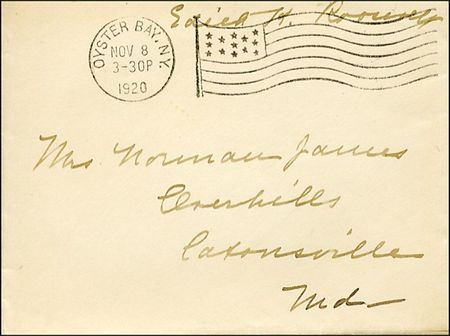 Edith K. Roosevelt
OYSTER BAY, N.Y.
NOV 8
3-30P
1920
Mrs Norman James
Overhills
Catonsville
Md